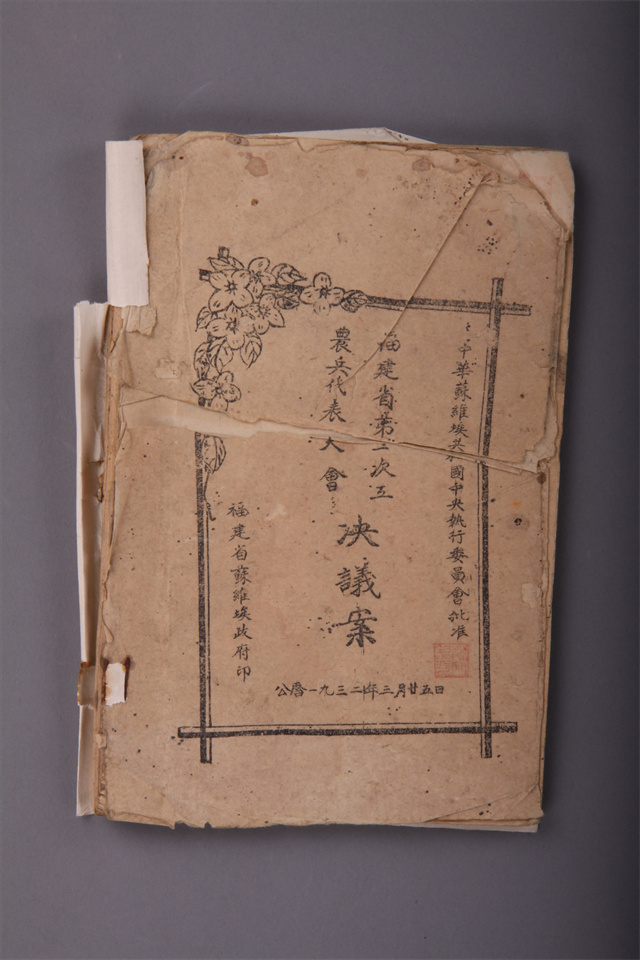 中華蘇維埃共和國中央执行委員會批准
福建省第一次工
農兵代表大會
决議案
福建省蘇維埃政府印
公曆一九三二年三月廿五日